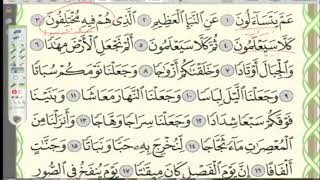 عَمَّ يَتَسَاءَلُونَ ١ عَنِ النَّبَإِ الْعَظِيمِ ٢ الَّذِي هُمْ فِيهِ مُخْتَلِفُونَ ٣
كَلَّا سَيَعْلَمُونَ ٤ ثُمَّ كَلَّا سَيَعْلَمُونَ ٥ أَلَمْ نَجْعَلِ الْأَرْضَ مِهَٰدًا ٦
وَالْجِبَالَ أَوْتَادًا ٧ وَخَلَقْنَٰكُمْ أَزْوَٰجًا ٨ وَجَعَلْنَا نَوْمَكُمْ سُبَاتًا
٩ وَجَعَلْنَا الَّيْلَ لِبَاسًا ١٠ وَجَعَلْنَا النَّهَارَ مَعَاشًا ١١ وَبَنَيْنَا
فَوْقَكُمْ سَبْعًا شِدَادًا ١٢ وَجَعَلْنَا سِرَاجًا وَهَّاجًا ١٣ وَأَنزَلْنَا مِنَ
الْمُعْصِرَٰتِ مَآءً ثَجَّاجًا ١٤ لِّنُخْرِجَ بِهِۦ حَبًّا وَنَبَاتًا ١٥ وَجَنَّٰتٍ
أَلْفَافًا ١٦ إِنَّ يَوْمَ الْفَصْلِ كَانَ مِيقَٰتًا ١٧ يَوْمَ يُنفَخُ فِي الصُّورِ